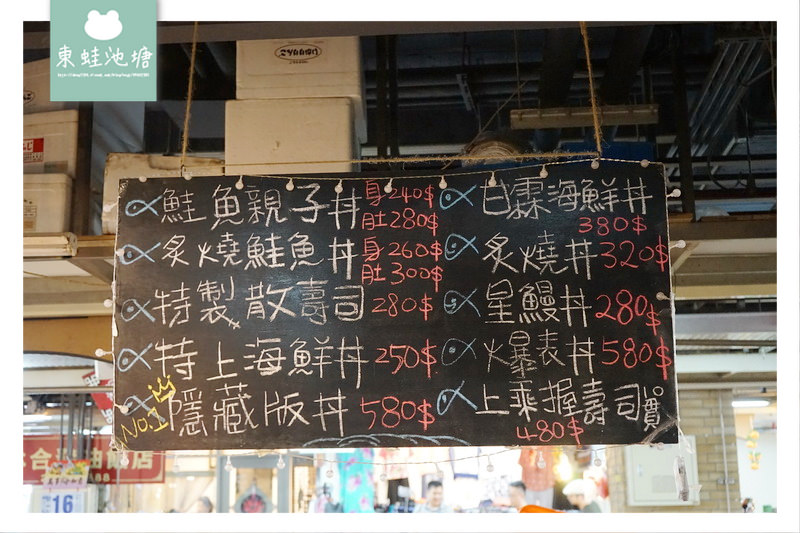 東蛙池塘
鮭魚親子丼 身240$
肚280$
炙燒鮭魚丼 身260$
肚300$
特製散壽司 280$
特上海鮮丼 250$
NO.1 隱藏版丼 580$
甘霖海鮮丼
380$
炙燒丼 320$
星鰻丼 280$
火暴表丼 580$
上乘握壽司 10貫
480$
16